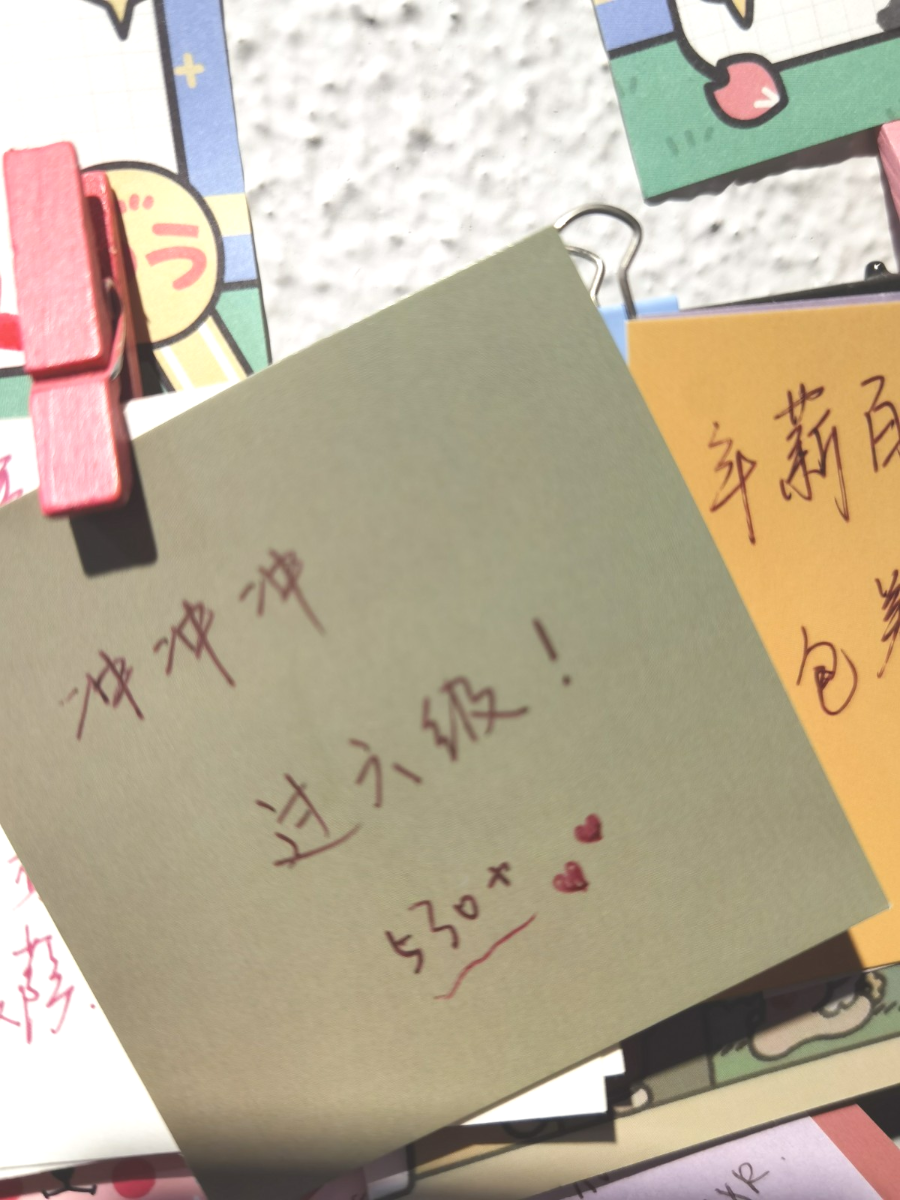 冲冲冲
过六级!
530+
辛薪百
包